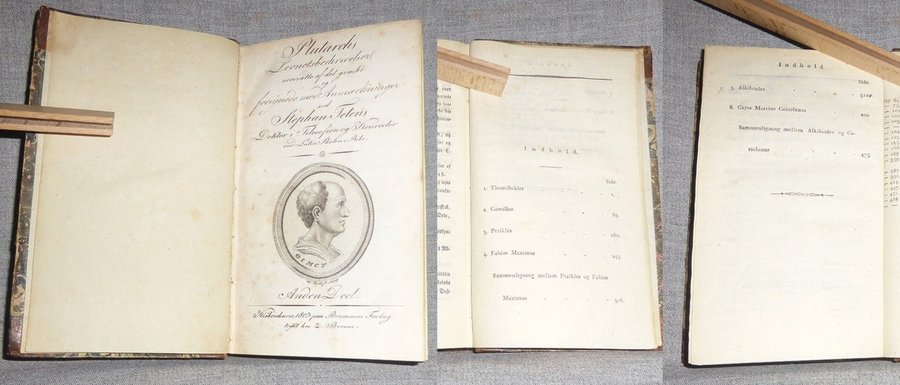 Plutarchs
Levnetsbeskrivelser
oversatte af det græske
og
forsynede med Anmærkninger
ved
Stephan Tetens
Doktor i Filosofien og Konrector
ved Latin Skolen i
Anden Deel.
Kiöbenhavn paa Brummers Forlag
trykt hos
Indhold.
Side.
1. Themistokles 1.
2. Camillus 69.
3. Perikles
4. Fabius Maximus 245.
Sammenligning mellem Perikles og Fabius
Maximus
Indhold.
Side.
5. Alkibiades
6. Cajus Marcius Coriolanus 400.
Sammenligning mellem Alkibiades og Co-
riolanus 475.